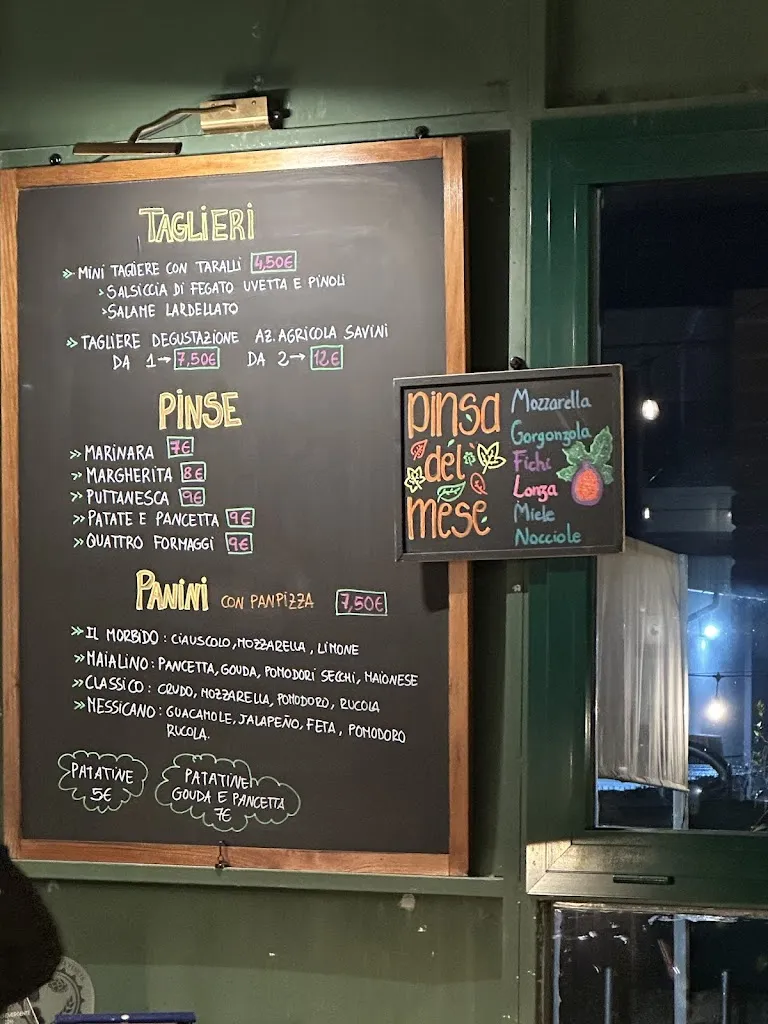 TAGLIERI
» MINI TAGLIERE CON TARALLI 4,50€
> SALSICCIA DI FEGATO UVETTA E PINOLI
> SALAME LARDELLATO
» TAGLIERE DEGUSTAZIONE AZ. AGRICOLA SAVINI
DA 1→ 7,50€ DA 2→ 12€
PINSE
» MARINARA 7€
» MARGHERITA 8€
» PUTTANESCA 9€
» PATATE E PANCETTA 9€
» QUATTRO FORMAGGI 9€
PANINI CON PANPIZZA 7,50€
» IL MORBIDO : CIAUSCOLO, MOZZARELLA , LIMONE
» MAIALINO : PANCETTA, GOUDA, POMODORI SECCHI, MAIONESE
» CLASSICO : CRUDO, MOZZARELLA, POMODORO, RUCOLA
» MESSICANO : GUACAMOLE, JALAPEÑO, FETA , POMODORO
RUCOLA.
PATATINE
5€
PATATINE
GOUDA E PANCETTA
7€
pinsa
del
mese
Mozzarella
Gorgonzola
Fichi
Lonza
Miele
Nocciole